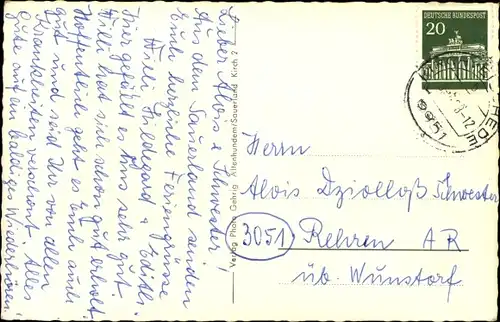 Lieber Alois u Schwester!
Aus dem Sauerland senden
Euch herzliche Feriengrüsse
Willi Hildegard u. Edith.
Hier gefällt es uns sehr gut.
Willi hat sich schon gut erholt.
Hoffentlich geht es Euch auch
gut und seid Ihr von allen
Krankheiten verschont. Alles
Gute und ein baldiges Wiedersehen!
Verlag Photo Gehrig Altenhundem/Sauerland Kirch
DEUTSCHE BUNDESPOST
20
Herrn
Alois Dziolloß Schwester
3051 Rehren AR
üb. Wunstorf